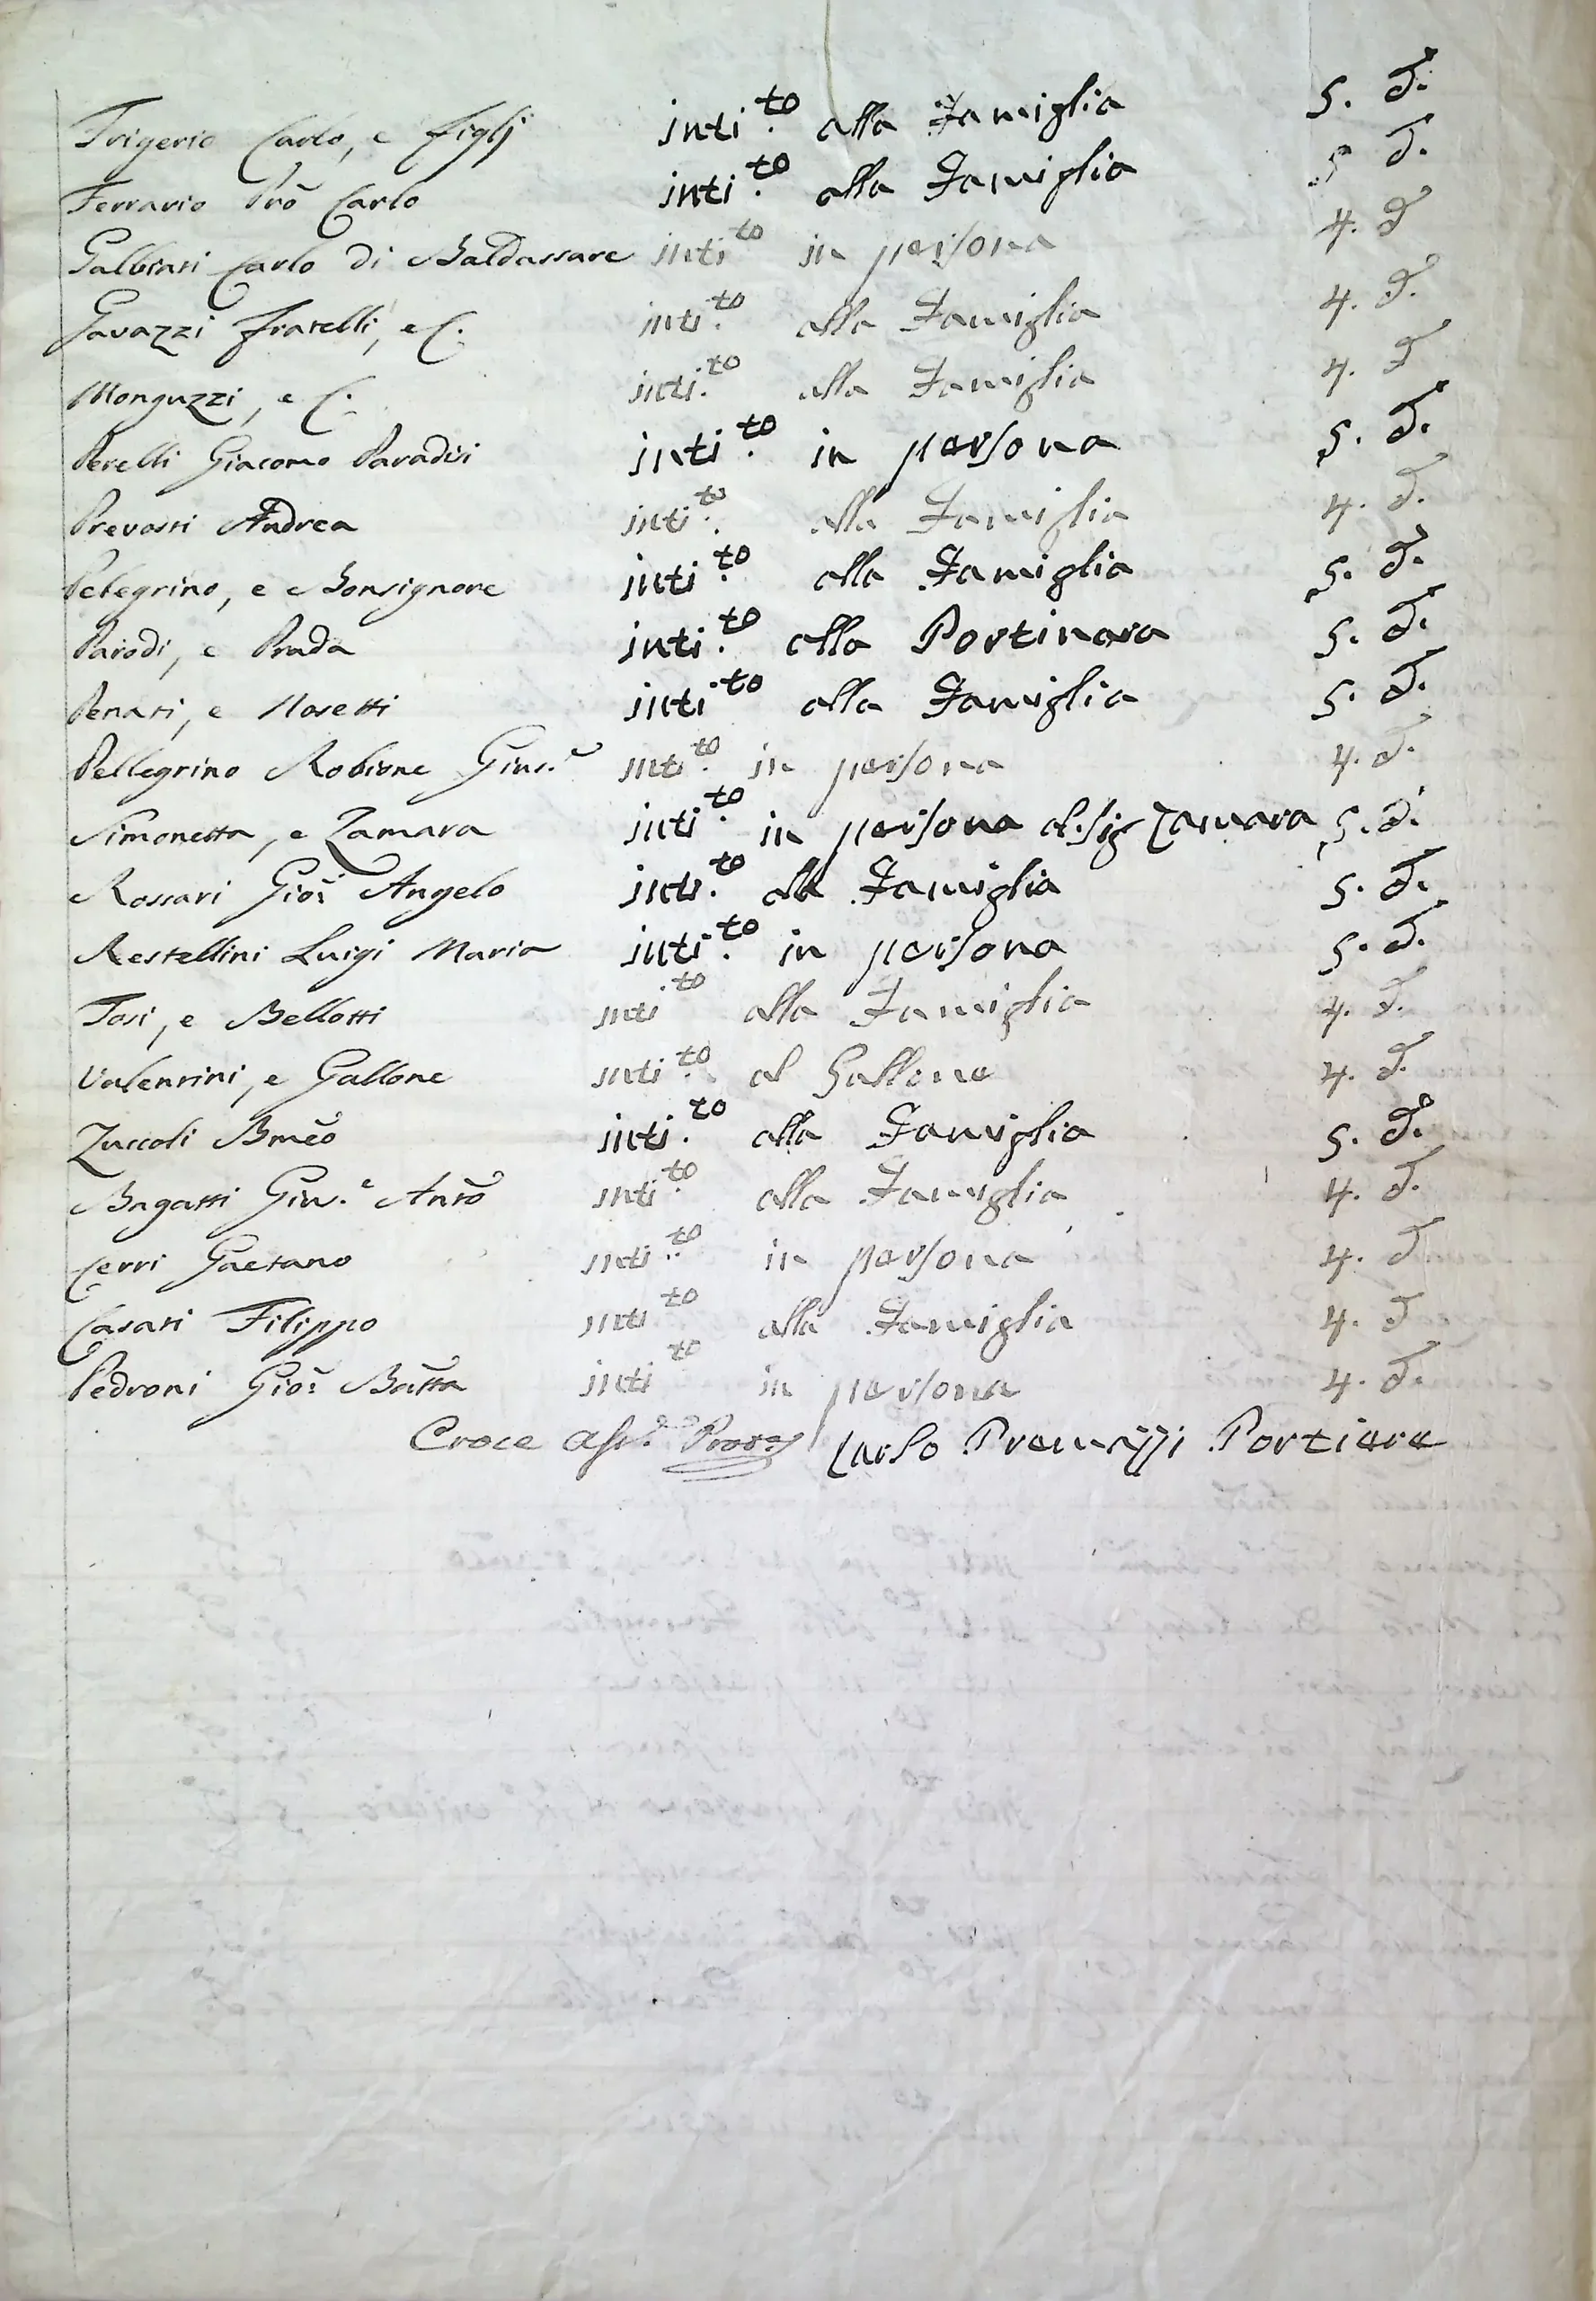 Frigerio Carlo, e figlj inti.to alla Famiglia 5. d.
Ferrario Prõ Carlo inti.to alla Famiglia 5 d.
Galbiati Carlo di Baldassare inti.to in persona 4. d
Gavazzi fratelli, e C. inti.to alla Famiglia 4. d.
Monguzzi, e C. inti.to alla Famiglia 4. d
Perelli Giacomo Paradisi inti.to in persona 5. d.
Prevosti Andrea inti.to alla Famiglia 4. d.
Pelegrino, e Bonsignore inti.to alla Famiglia 5. d.
Parodi, e Prada inti.to alla Portinara 5. d.
Penati, e Nosetti inti.to alla Famiglia 5. d.
Pellegrino Robione Gius.e inti.to in persona 4. d.
Simonetta, e Zamara inti.to in persona d. sig Zamara 5. d.
Rossari Gioṽ Angelo inti.to alla Famiglia 5. d.
Restellini Luigi Maria inti.to in persona 5. d.
Tosi, e Bellotti inti to alla Famiglia 4. d.
Valentini, e Gallone inti.to al Gallone 4. d.
Zuccoli Bmẽo inti.to alla Famiglia 5. d.
Bagatti Gius.e Antõ inti.to alla Famiglia 4. d.
Cerri Gaetano inti.to in persona 4. d
Casati Filippo inti to alla Famiglia 4. d
Pedroni Gioṽ Batta inti to in persona 4. d.
Croce Carlo Premazzi Portiere